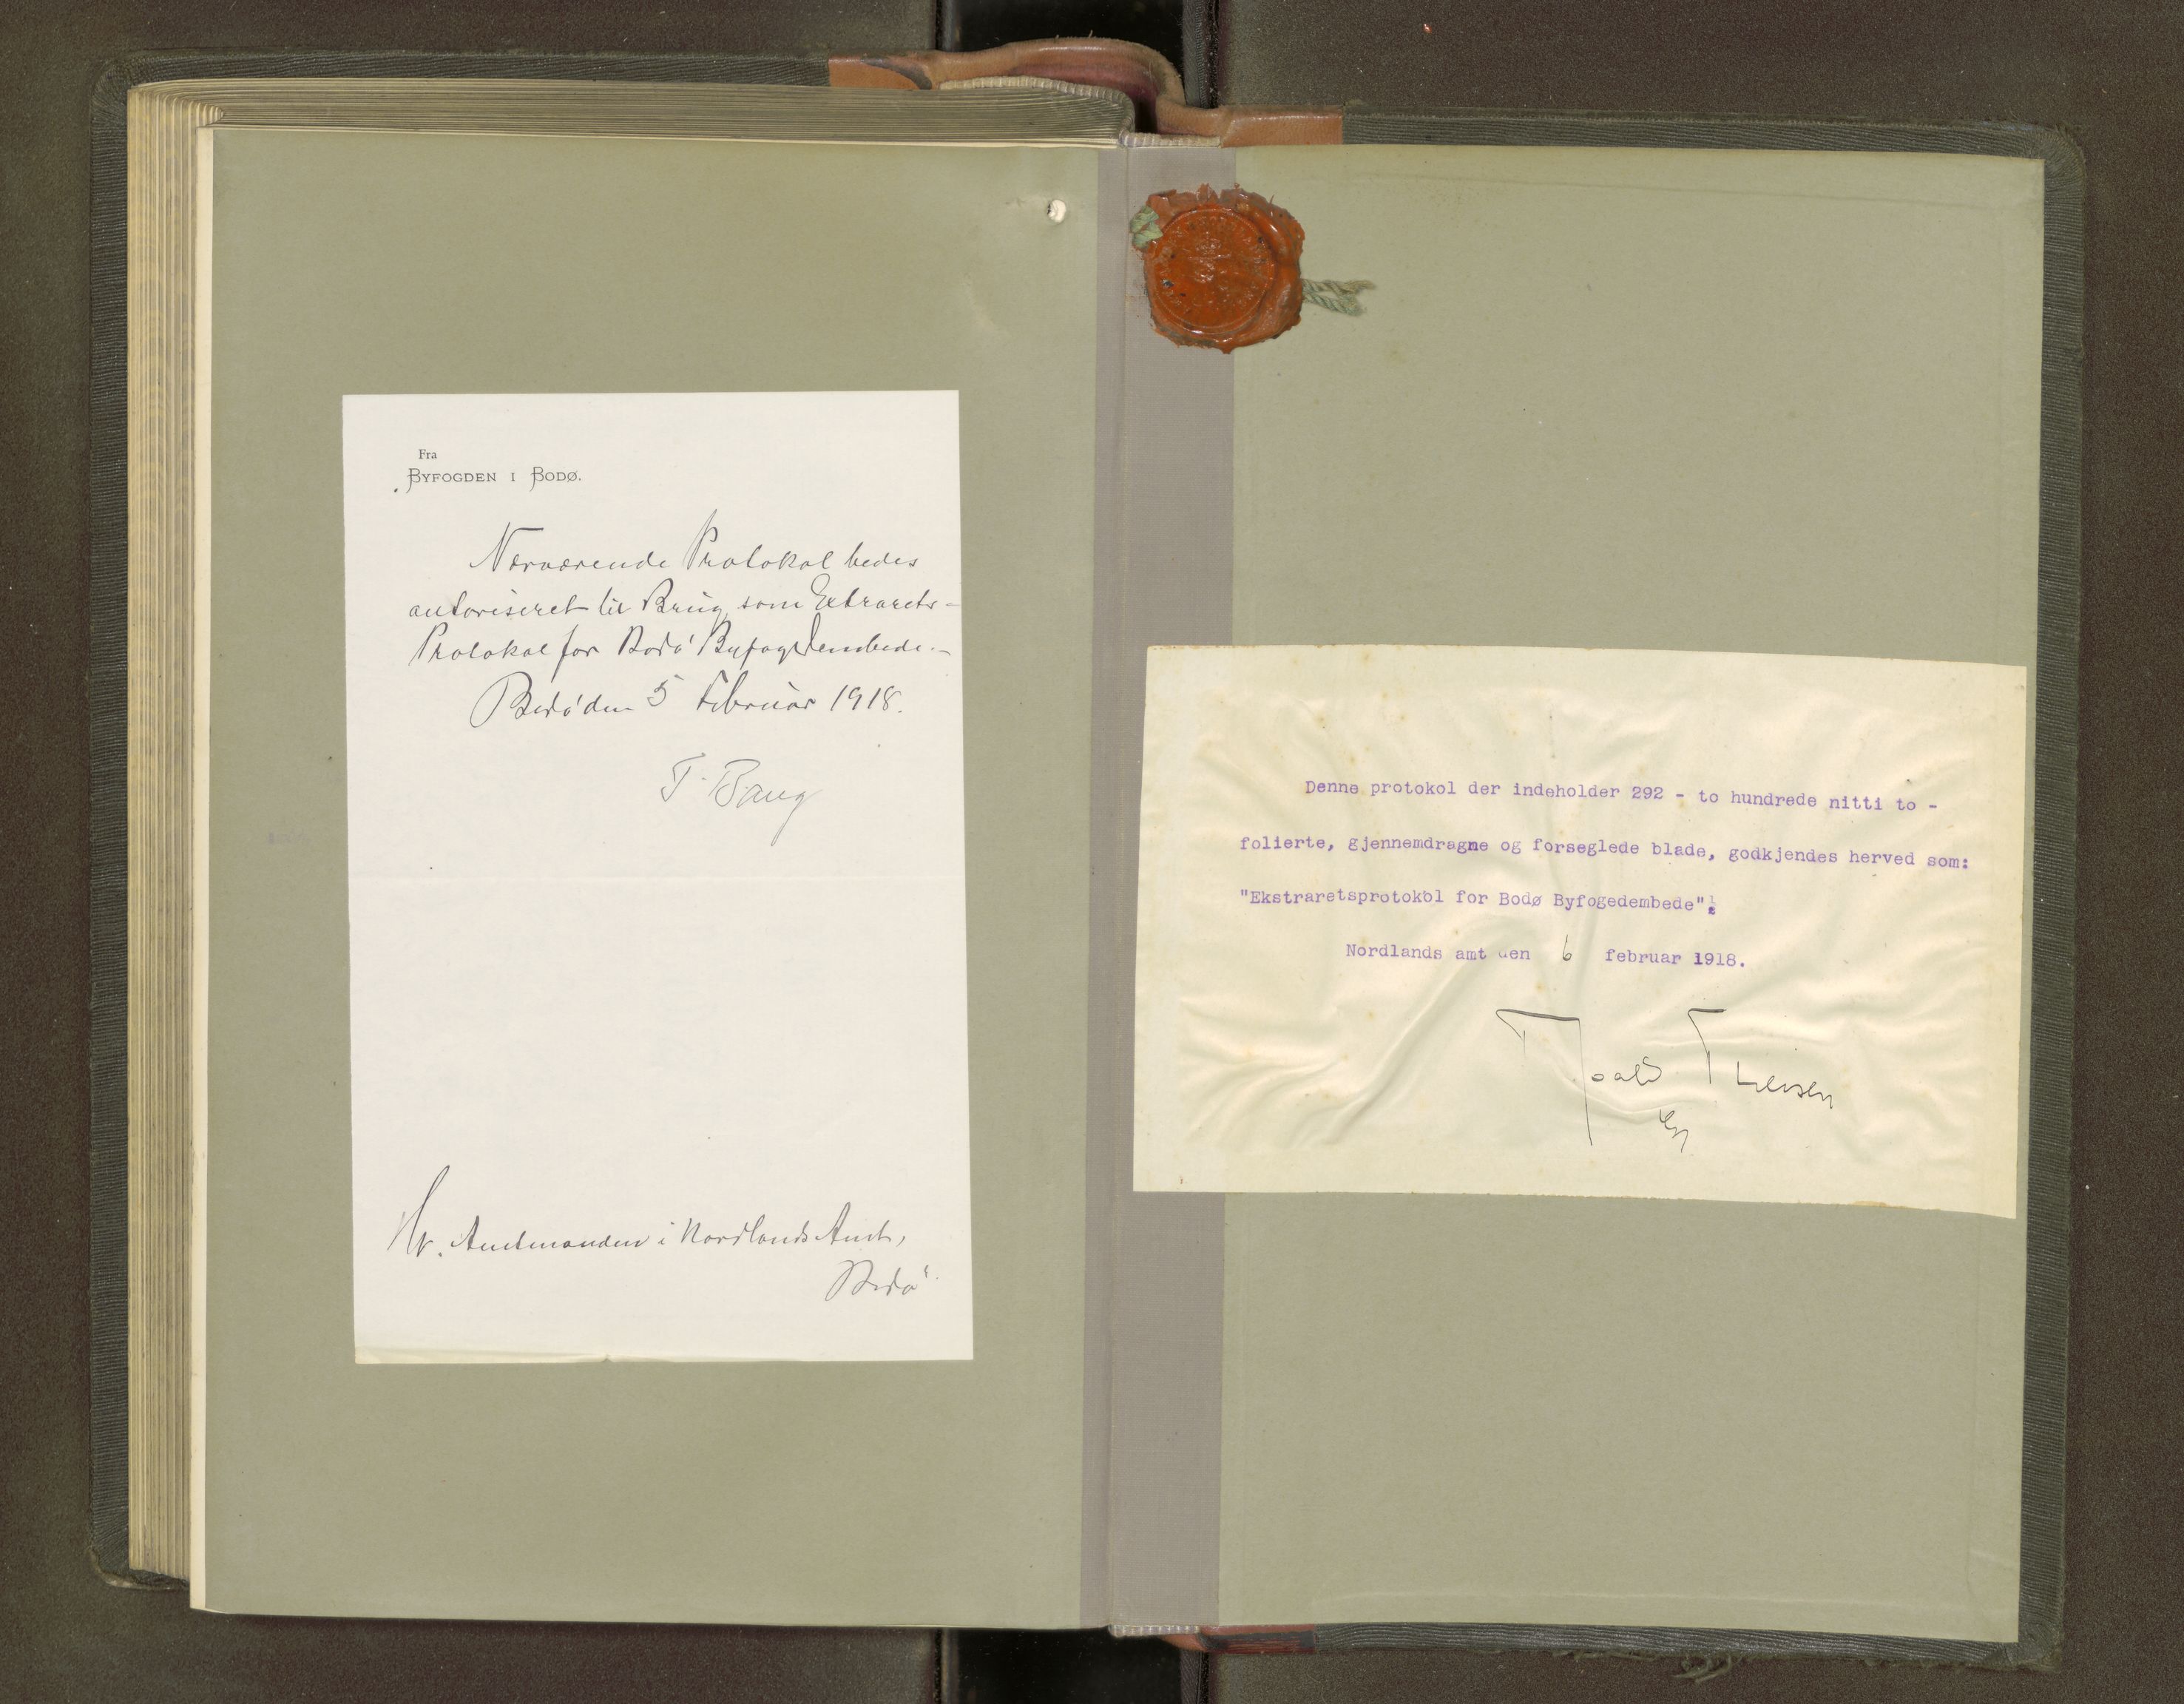 Fra
BYFOGDEN I BODØ.
Nærværende Protokol bedes
autoriseret til Brug som Extrarets-
Protokol for Bodø Byfogdembede.-
Bodø den 5 Februar 1918.
T. Bang
Hr. Amtmanden i Nordlands Amt,
Bodø.
Denne protokol der indeholder 292 - to hundrede nitti to -
folierte, gjennemdragne og forseglede blade, godkjendes herved som:
"Ekstraretsprotokol for Bodø Byfogedembede".
Nordlands amt den 6 februar 1918.